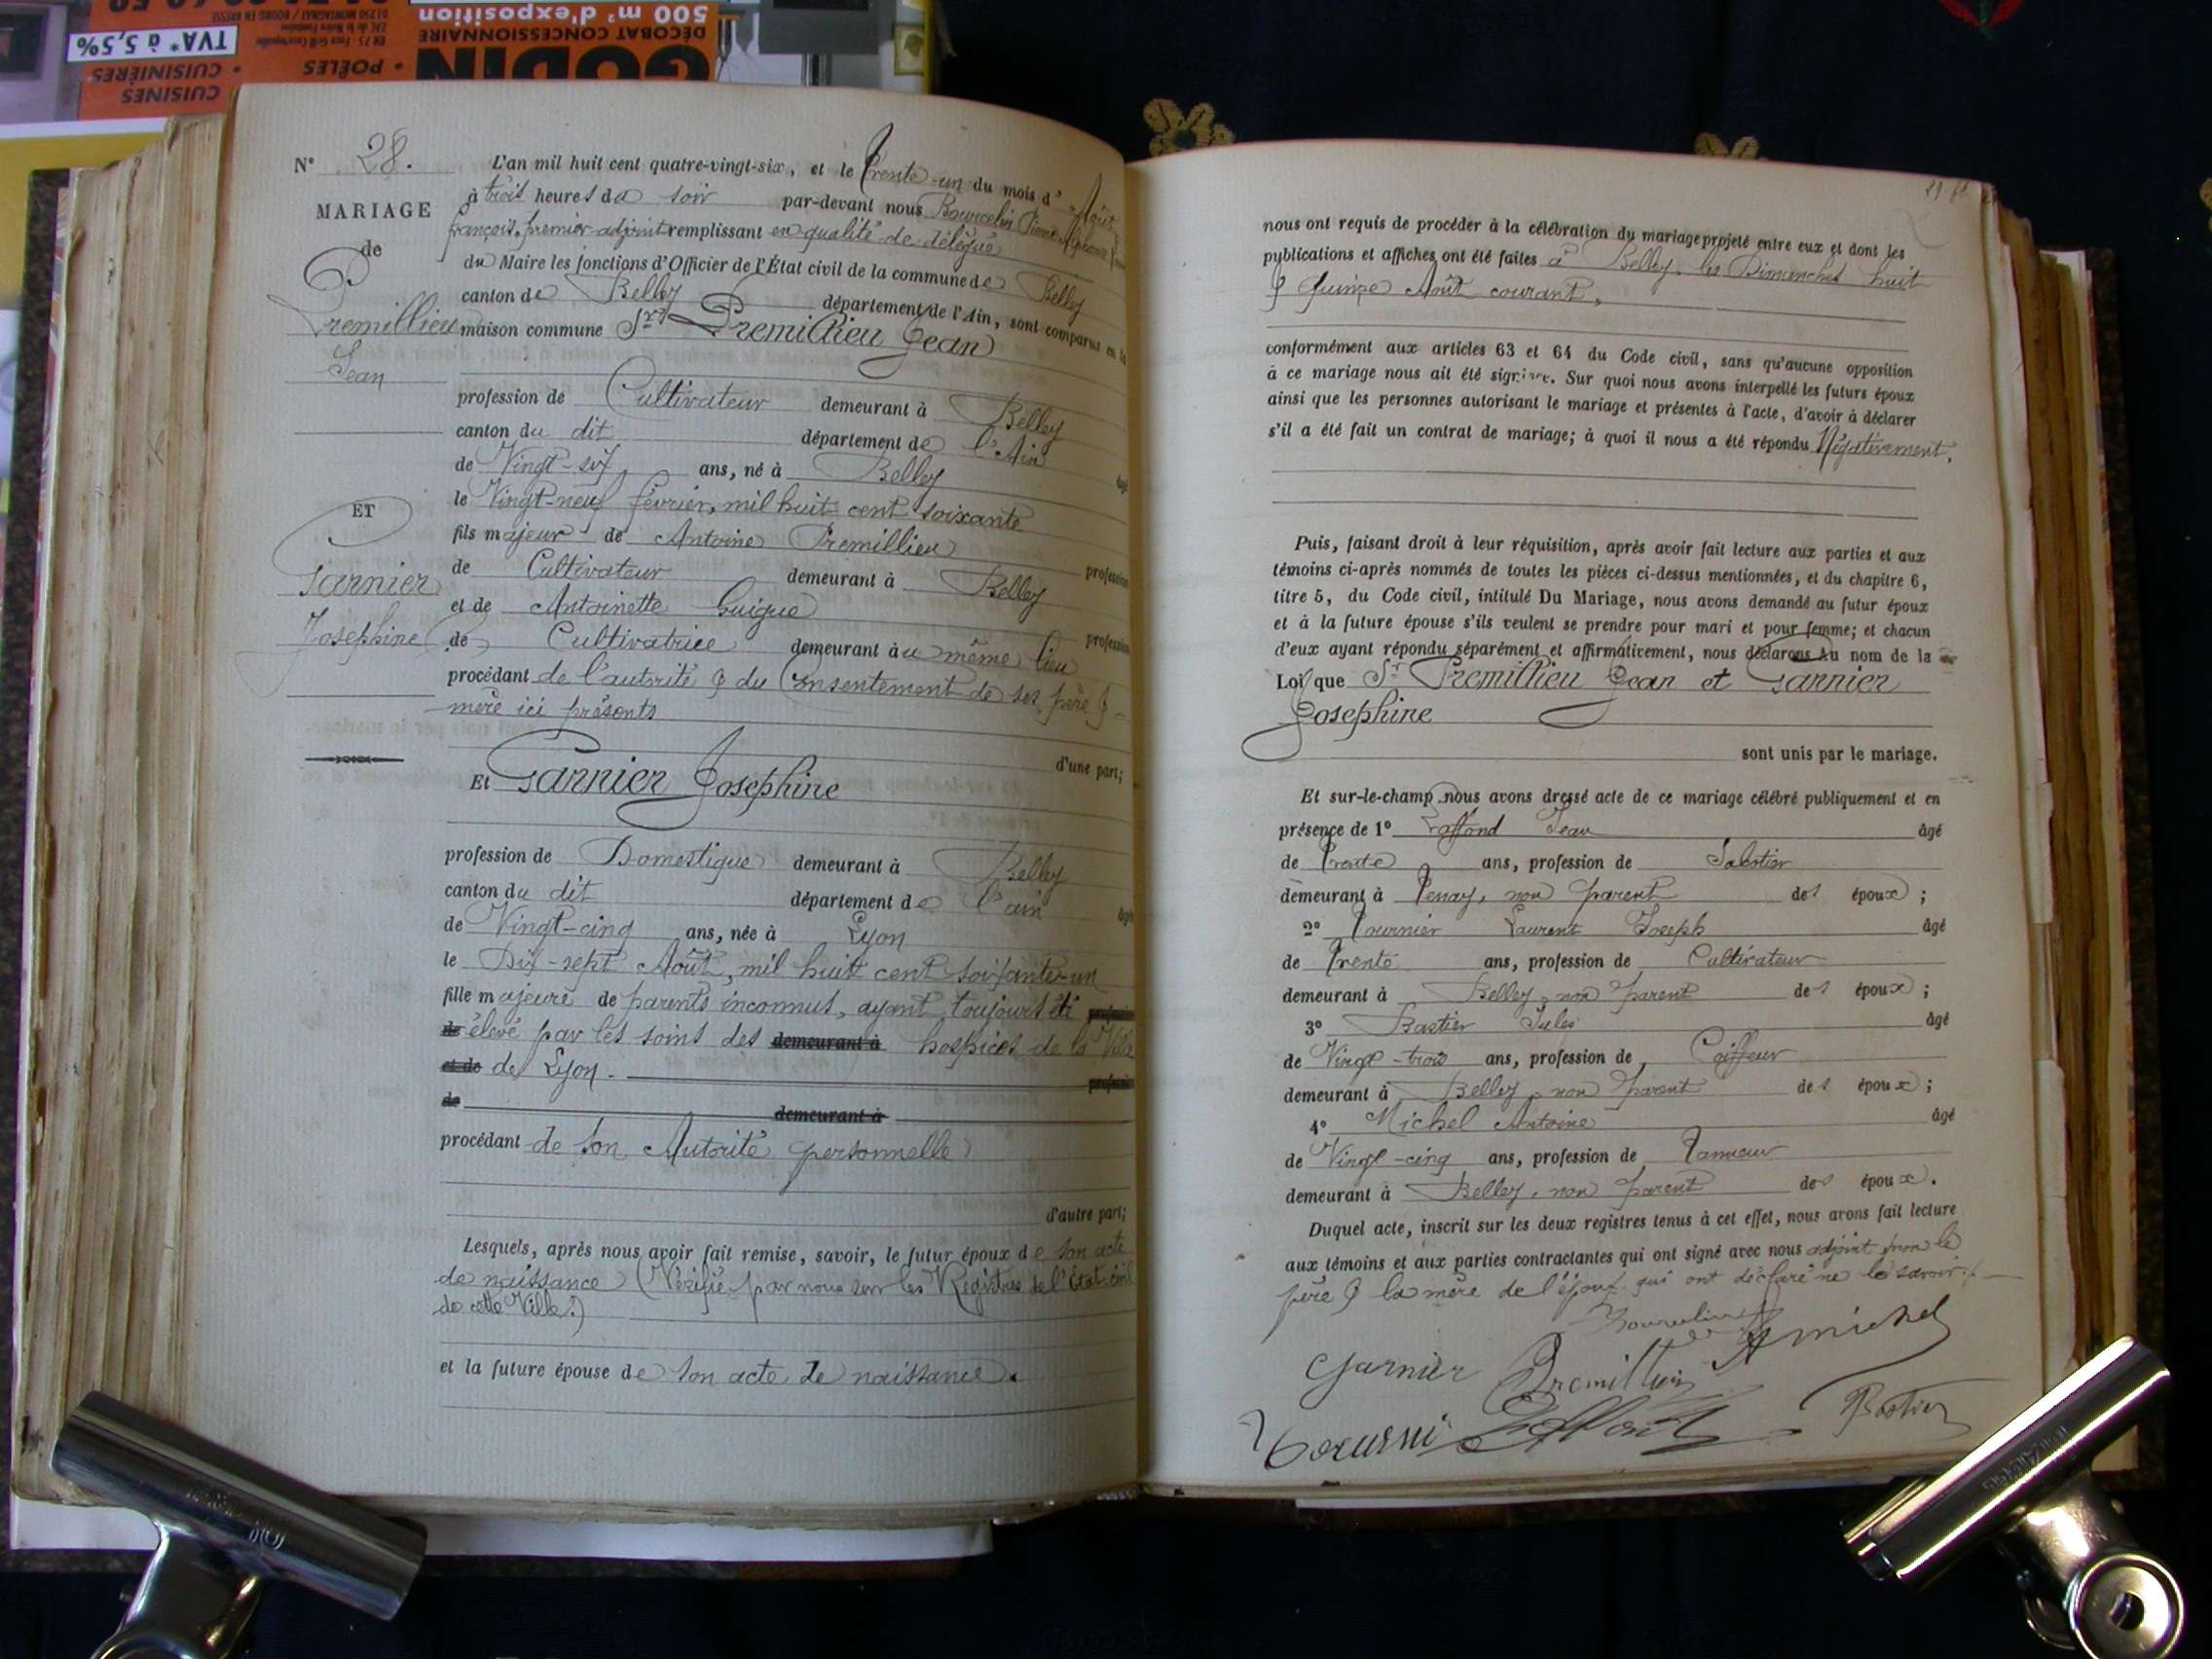 500 m² d'exposition
DÉCOBAT CONCESSIONNAIRE
GODIN
TVA* à 5,5%
• POÊLES
• CUISINIÈRES
CUISINES
N° 28.
MARIAGE
de
Premillieu
Jean
ET
Garnier
Josephine
L'an mil huit cent quatre-vingt-six, et le trente-un du mois d'Août
à trois heures du soir par-devant nous Bourcelin Pierre Alphonse
françois, premier adjoint remplissant en qualité de délégué
du Maire les fonctions d'Officier de l'État civil de la commune de Belley
canton de Belley département de l'Ain, sont comparus en la
maison commune Sr Premillieu Jean
profession de Cultivateur demeurant à Belley
canton du dit département de l'Ain âgé
de Vingt-six ans, né à Belley
le Vingt-neuf février, mil huit cent soixante
fils majeur de Antoine Premillieu profession
de Cultivateur demeurant à Belley
et de Antoinette Guigue profession
de Cultivatrice demeurant au même lieu
procédant de l'autorité & du Consentement de ses père &
mère ici présents
d'une part;
Et Garnier Josephine
profession de Domestique demeurant à Belley
canton du dit département de l'ain âgé
de Vingt-cinq ans, née à Lyon
le Dix-sept Août, mil huit cent soixante-un
fille majeure de parents inconnus, ayant toujours été profession
de élevé par les soins des demeurant à hospices de la Ville
et de de Lyon. profession
de demeurant à
procédant de son Autorité personnelle
d'autre part;
Lesquels, après nous avoir fait remise, savoir, le futur époux de son acte
de naissance (Vérifié par nous sur les Registres de l'Etat-civil
de cette Ville.)
et la future épouse de son acte de naissance.
nous ont requis de procéder à la célébration du mariage projeté entre eux et dont les
publications et affiches ont été faites à Belley, les Dimanches huit
& quinze Août courant,
conformément aux articles 63 et 64 du Code civil, sans qu'aucune opposition
à ce mariage nous ait été signifiée. Sur quoi nous avons interpellé les futurs époux
ainsi que les personnes autorisant le mariage et présentes à l'acte, d'avoir à déclarer
s'il a été fait un contrat de mariage; à quoi il nous a été répondu Négativement.
Puis, faisant droit à leur réquisition, après avoir fait lecture aux parties et aux
témoins ci-après nommés de toutes les pièces ci-dessus mentionnées, et du chapitre 6,
titre 5, du Code civil, intitulé Du Mariage, nous avons demandé au futur époux
et à la future épouse s'ils veulent se prendre pour mari et pour femme; et chacun
d'eux ayant répondu séparément et affirmativement, nous déclarons Au nom de la
Loi que Sr Premillieu Jean et Garnier
Josephine
sont unis par le mariage.
Et sur-le-champ nous avons dressé acte de ce mariage célébré publiquement et en
présence de 1° Laffond Jean âgé
de trente ans, profession de Sabotier
demeurant à Tenay, non parent des époux;
2° Tournier Laurent Joseph âgé
de trente ans, profession de Cultivateur
demeurant à Belley, non parent des époux;
3° Bastier Jules âgé
de Vingt-trois ans, profession de Coiffeur
demeurant à Belley, non parent des époux;
4° Michel Antoine âgé
de Vingt-cinq ans, profession de Tanneur
demeurant à Belley, non parent des époux.
Duquel acte, inscrit sur les deux registres tenus à cet effet, nous avons fait lecture
aux témoins et aux parties contractantes qui ont signé avec nous adjoint, non le
père & la mère de l'époux qui ont déclaré ne le savoir.
A michel
Garnier Premillieu
Bastier